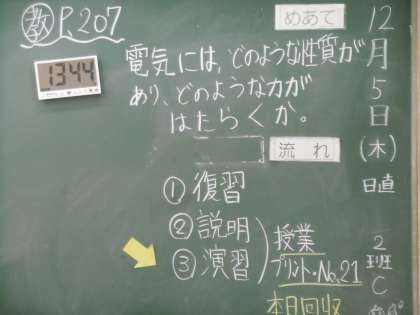 教 P.207
1344
めあて
電気には、どのような性質が
あり、どのような力が
はたらくか。
流れ
①復習
②説明
③演習
授業
プリント・No.21
本日回収
12月5日(木)
日直
2班C